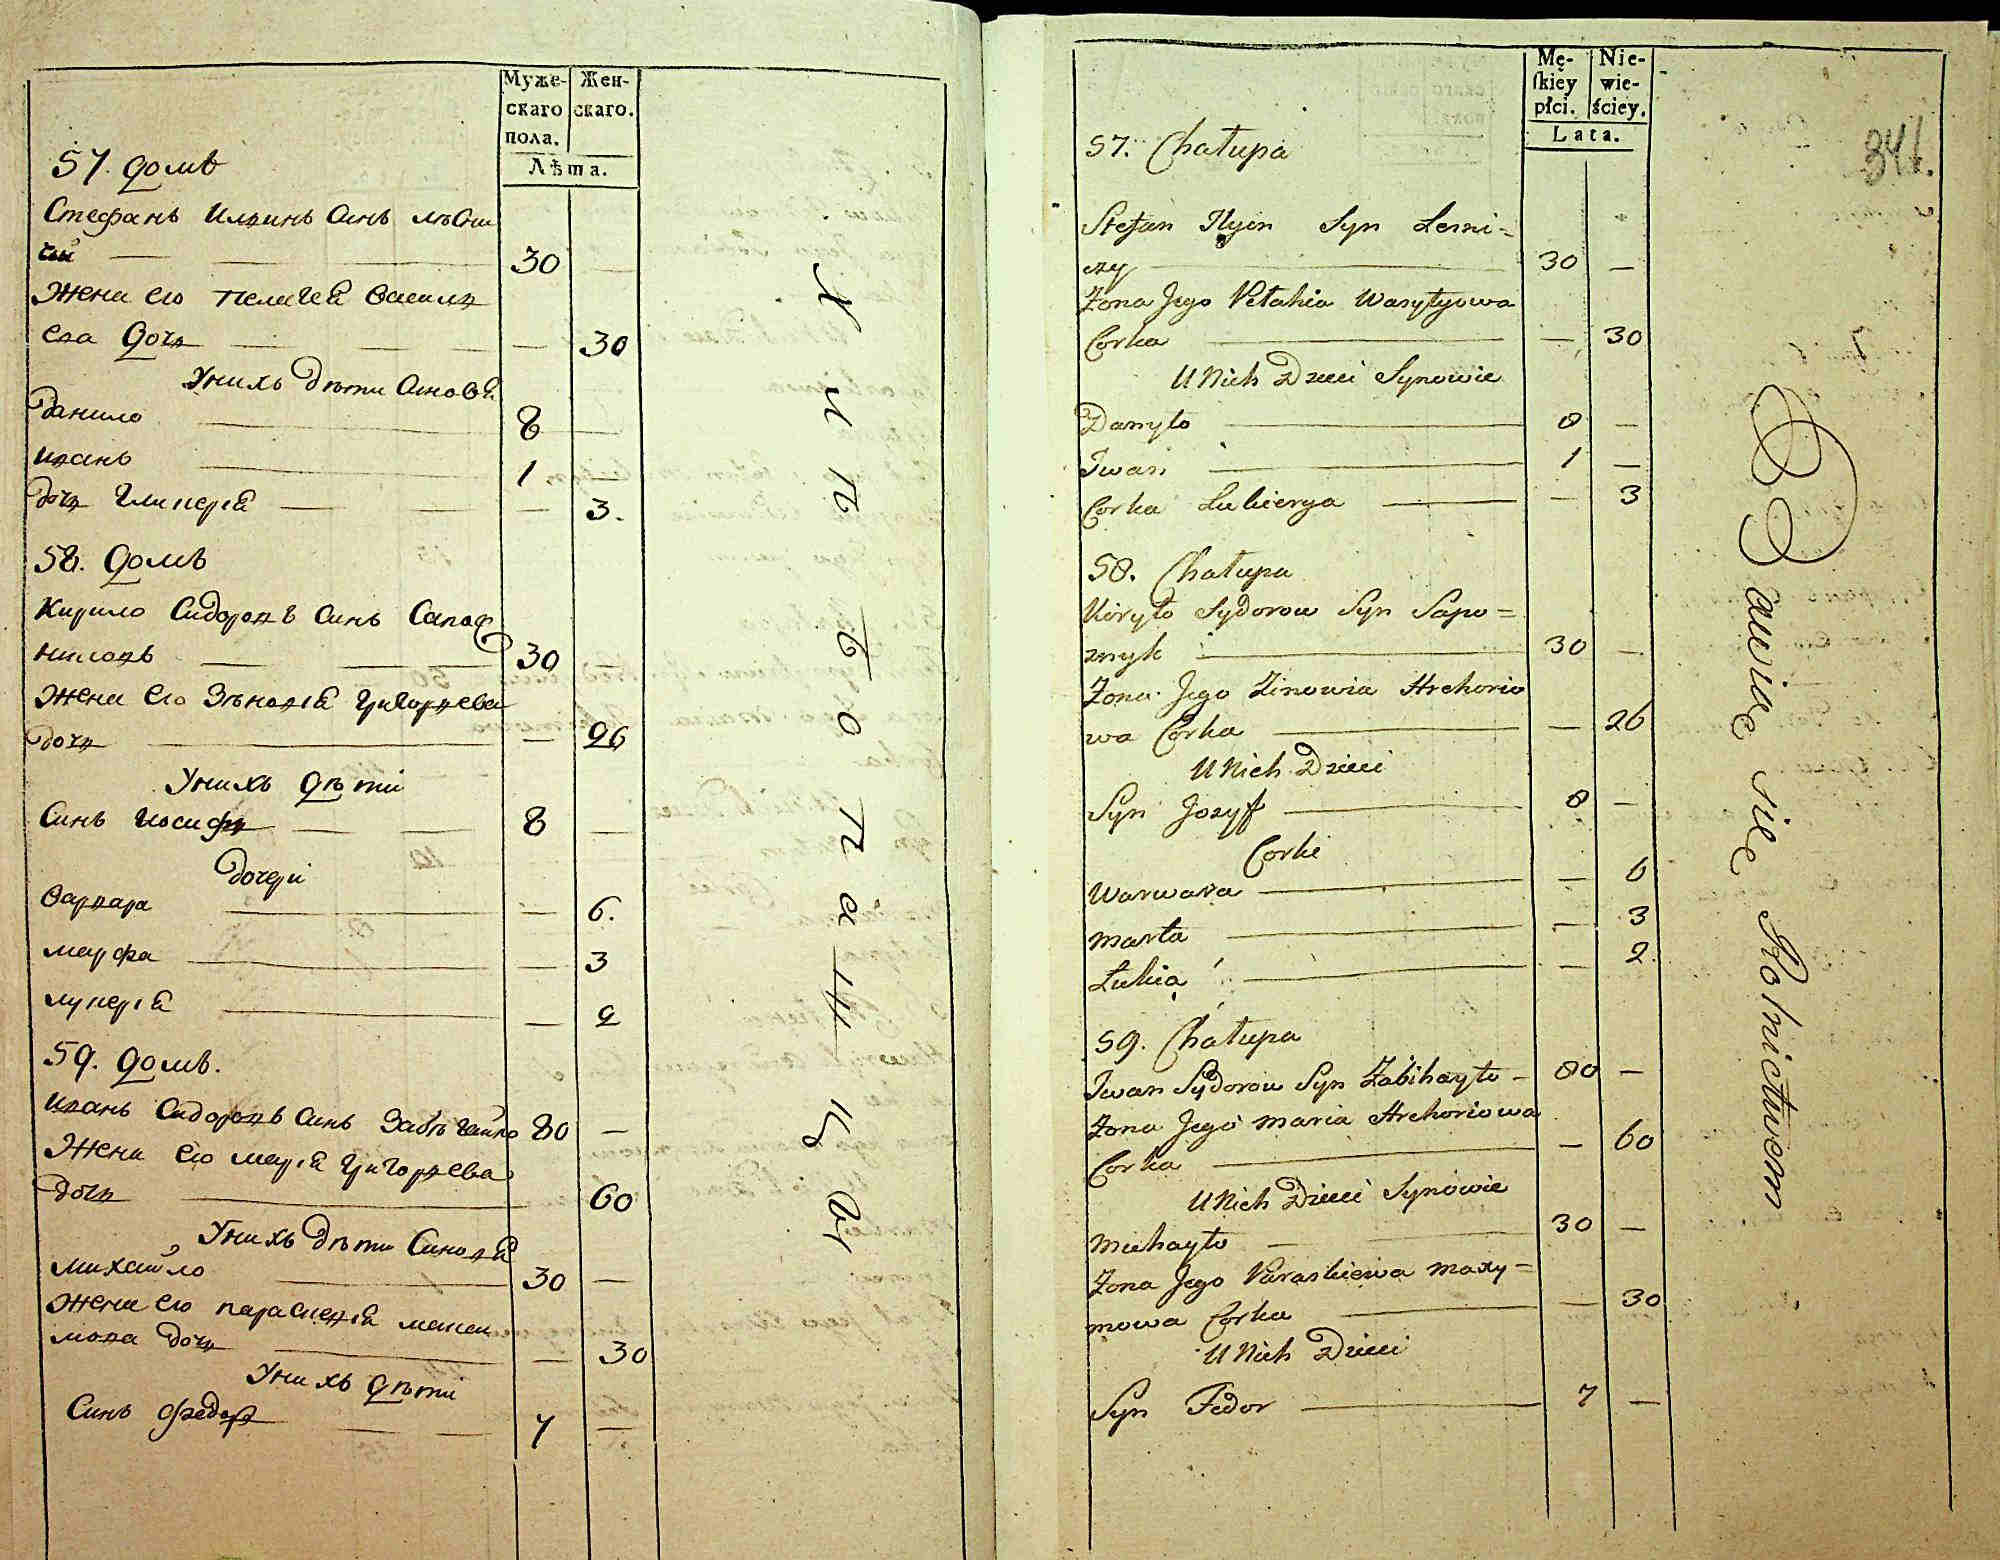 Муже-
скаго
пола.
Жен-
скаго.
Лѣта.
57. домъ
Стефанъ Илвинъ Синъ лѣсни
чий — — 30 —
Жена его Пелагей Василв
ева дочь — — — 30
У нихъ дѣти Синовѣ
Данило — 8 —
Иванъ — 1 —
дочь Гликерій — — 3.
58. домъ
Кирило Сидоровъ Синъ Сапож
никовъ — — 30 —
Жена его Зѣновій Григорьева
дочь — — 26
У нихъ дѣти
Синъ Иосифъ — — 8 —
дочери
Варвара — — 6.
Марфа — — 3
Лукерій — — 2
59. домъ.
Иванъ Сидоровъ Синъ Забѣгайло 80 —
Жена его Марій Григорьева
дочь — 60
У нихъ дѣти Синовѣ
Михайло — 30 —
Жена его Параскевій Макси
мова дочь — — 30
У нихъ дѣти
Синъ Федоръ — — 7 —
Хлѣбопашцы
Mę-
skiey
płci.
Nie-
wie-
ściey.
Lata.
341.
57. Chałupa
Stefan Ilyin Syn Leśni=
czy — 30 —
Zona Jego Pelahia Wasylyowa
Corka — — 30
U Nich Dzieci Synowie
Danyło — 8 —
Iwan — 1 —
Corka Lukierya — — 3
58. Chałupa
Kiryło Sydorow Syn Sapo=
znyk — 30 —
Zona Jego Zinowia Hrehorio
wa Corka — — 26
U Nich Dzieci
Syn Jozyf — 8 —
Corki
Warwara — — 6
Marta — — 3
Łukia — — 2
59. Chałupa
Iwan Sydorow Syn Zabihayło — 80 —
Zona Jego Maria Hrehoriowa
Corka — — 60
U Nich Dzieci Synowie
Michayło — 30 —
Zona Jego Paraskiewa Maxy=
mowa Corka — — 30
U Nich Dzieci
Syn Fedor — 7 —
Bawią się Rolnictwem